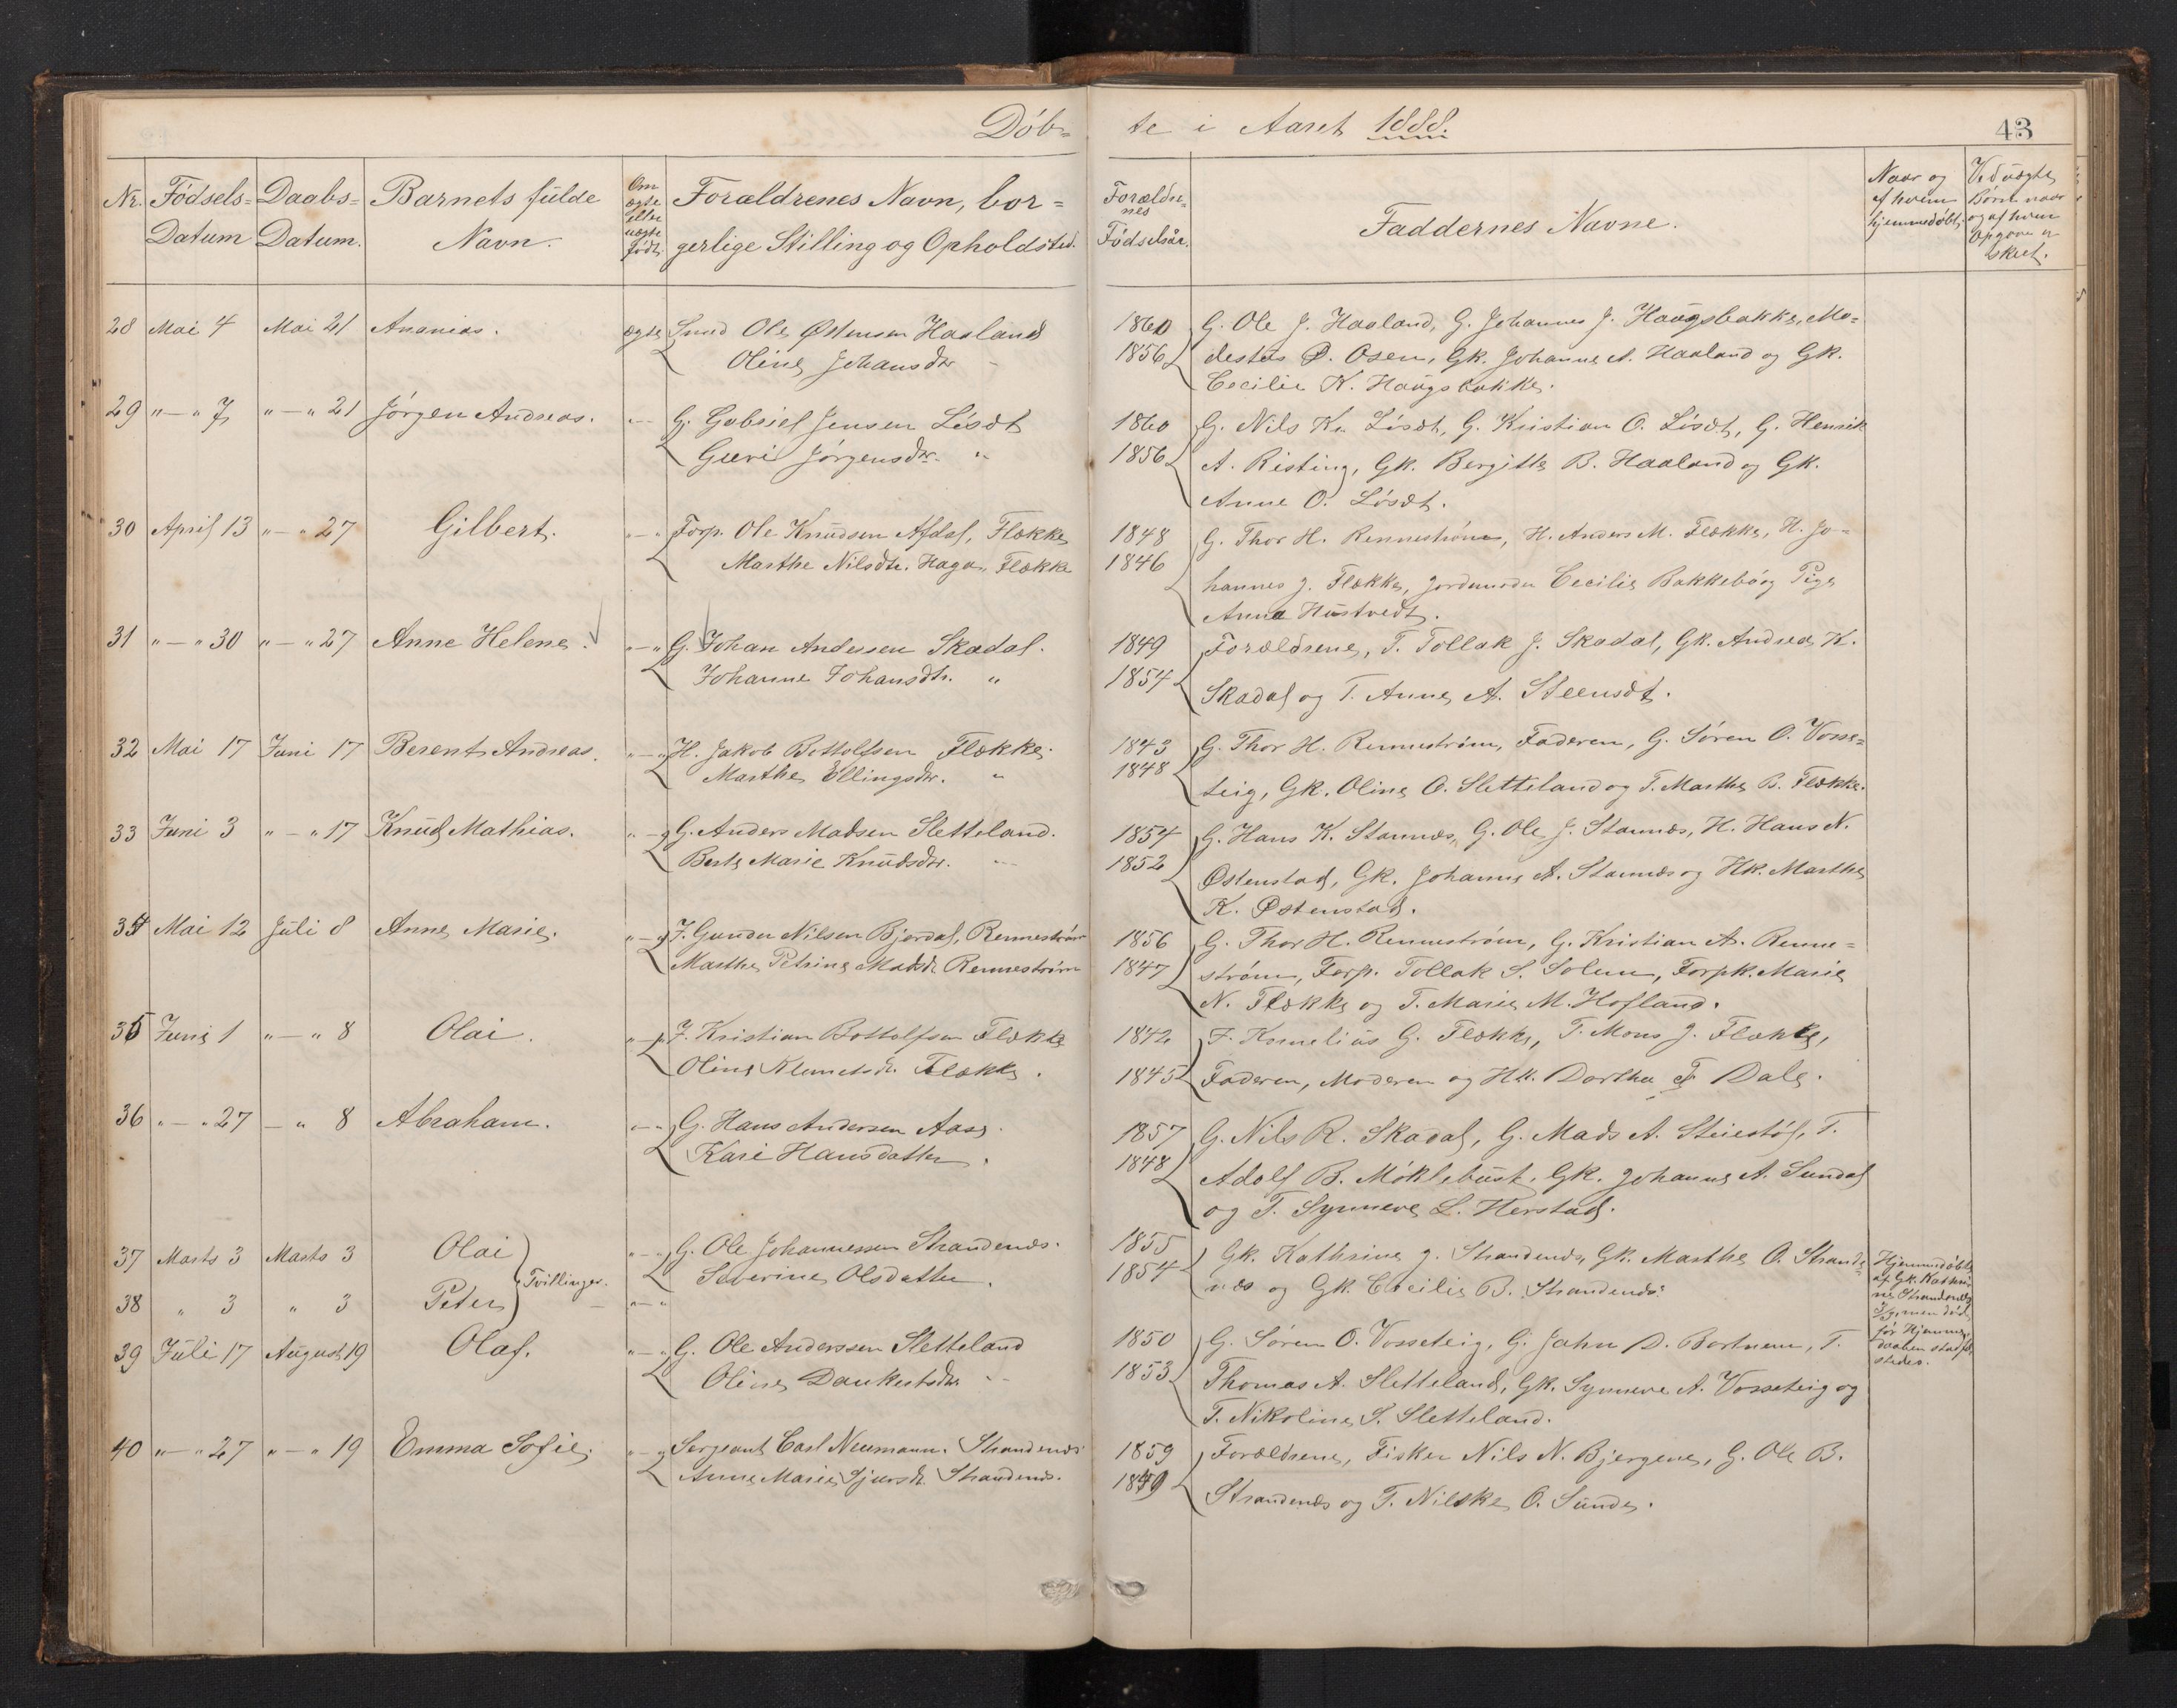 Döb=
te i Aaret 1888.
43
Nr. Födsels= Datum
Daabs= Datum.
Barnets fulde Navn.
Om ægte eller uægte født.
Forældrenes Navn, bor=
gerlige Stilling og Opholdsted.
Forældre=
nes
Fødselsår.
Faddernes Navne.
Naar og
af hvem
hjemmedøbt.
Ved uægte
Børn naar
og af hvem
Opgave er
skeet.
28 Mai 4 Mai 21 Ananias. ægte Smed Ole Østensen Haaland
Oline Johansdtr "
1860 G. Ole J. Haaland, G. Johannes J. Haugsbakke, Mo=
1856 destus D. Osen, Gk. Johanne A. Haaland og Gk.
Cecilie K. Haugsbakke.
29 "—" 7 "—" 21 Jörgen Andreas. "—" G. Gabriel Jensen Løsdt
Guri Jörgensdtr. "
1860 G. Nils Kr. Løsdt, G. Kristian O. Løsdt, G. Henrik
1856 A. Risting, Gk. Bergitte B. Haaland og Gk.
Anne O. Løsdt.
30 April 13 "—" 27 Gilbert. "—" Forp. Ole Knudsen Afdal, Flække
Marthe Nilsdtr. Haga, Flække
1848 G. Thor H. Rennestrøm, H. Anders M. Flække, H. Jo=
1846 hannes J. Flække, Jordmoder Cecilie Bakkebø og Pige
Anna Hustvedt.
31 "—" 30 "—" 27 Anne Helene. "—" G. Johan Andersen Skadal.
Johanne Johansdtr. "
1849 Forældrene, T. Tollak J. Skadal, Gk. Andrea K.
1854 Skadal og T. Anne A. Steensdt.
32 Mai 17 Juni 17 Berent Andreas. "—" H. Jakob Bottolfsen Flække.
Marthe Ellingsdtr. "
1843 G. Thor H. Rennestrøm, Faderen, G. Søren O. Vosse=
1848 teig, Gk. Oline O. Sletteland og T. Marthe B. Flække.
33 Juni 3 "—" 17 Knud Mathias. "—" G. Anders Madsen Sletteland.
Berte Marie Knudsdtr. "
1854 G. Hans K. Stavnæs, G. Ole J. Stavnæs, H. Hans N.
1852 Østenstad, Gk. Johanne A. Stavnæs og Hk. Marthe
K. Østenstad.
34 Mai 12 Juli 8 Anne Marie. "—" I. Gunder Nilsen Bjordal, Rennestrøm
Marthe Petrine Madsdr. Rennestrøm
1856 G. Thor H. Rennestrøm, G. Kristian A. Renne=
1847 strøm, Forp. Tollak S. Solem, Forpk. Marie
N. Flække og T. Marie M. Hofland.
35 Juni 1 "—" 8 Olai. "—" I. Kristian Bottolfsen Flække
Oline Klemetsdr. Flække.
1842 F. Kornelius G. Flække, T. Mons J. Flække,
1845 Faderen, Moderen og Hk. Dorthea F Dale.
36 "—" 27 —" 8 Abraham. "—" G. Hans Andersen Aase.
Kari Hansdatter.
1857 G. Nils R. Skadal, G. Mads A. Steiestøl, T.
1848 Adolf B. Møklebust, Gk. Johanne A. Sundal
og T. Synneve L. Herstad.
37 Marts 3 Marts 3 Olai "—" G. Ole Johannessen Strandenæs.
Tvillinger. Severine Olsdatter.
38 " 3 " 3 Peter "—"
1855 Gk. Kathrine J. Strandenæs, Gk. Marthe O. Strande=
1854 næs og Gk. Cecilie B. Strandenæs.
Hjemmedøbte
af Gk. Kathri=
ne Strandenæs
3/3, men døde
før Hjemme=
daaben stadfæ
stedes.
39 Juli 17 August 19 Olaf. "—" G. Ole Anderssen Sletteland
Oline Dankertsdtr. "
1850 G. Søren O. Vosseteig, G. Jahn D. Bortnem, T.
1853 Thomas A. Sletteland, Gk. Synneve A. Vosseteig og
T. Nikoline S. Sletteland.
40 "—" 27 "—" 19 Emma Sofie. "—" Sergeant Carl Neumann. Strandenæs
Anne Marie Sjursdr. Strandenæs.
1859 Forældrene, Fisker Nils N. Bjergene, G. Ole B.
1859 Strandenæs og T. Nilske O. Sunde.